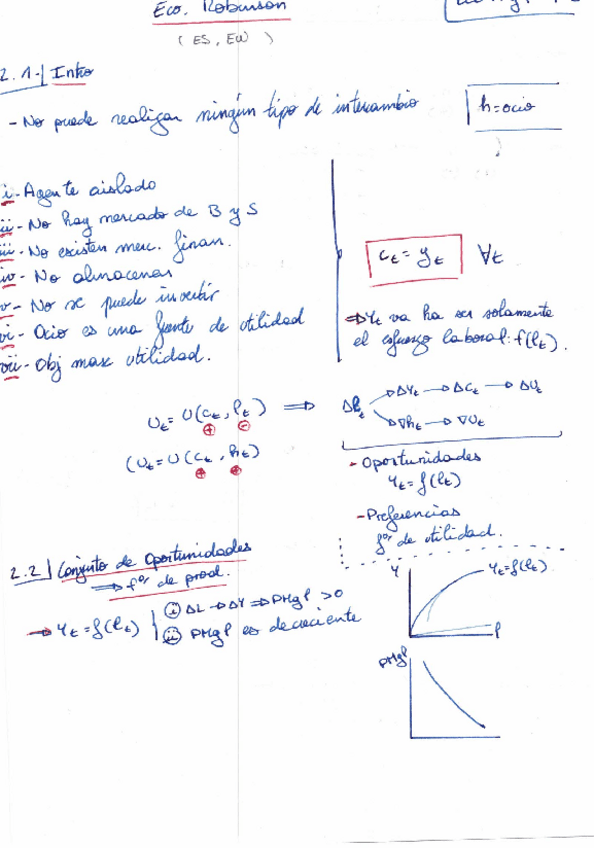 Eco. Robinson
(ES, EW)
2.1-| Intro
- No puede realizar ningún tipo de intercambio
h=ocio
i- Agente aislado
ii- No hay mercado de B y S
iii- No existen merc. finan.
iv- No almacenar
v- No se puede invertir
vi- Ocio es una fuente de utilidad
vii- Obj max utilidad.
Ct = yt ∀t
⇒ Yt va ha ser solamente
el esfuerzo laboral: f(lt).
Ut = U(ct, lt) ⇒
⊕ ⊖
(Ut = U(ct, ht)
⊕ ⊕
Δlt → ΔYt → Δct → ΔUt
→ ∇ht → ∇Ut
- Oportunidades
Yt = f(lt)
- Preferencias
fºⁿ de utilidad.
2.2| Conjunto de Oportunidades
⇒ fºⁿ de prod.
→ Yt = f(lt)
i ΔL → ΔY ⇒ PMgl > 0
ii PMgl es decreciente
Y
Yt = f(lt)
l
PMgl